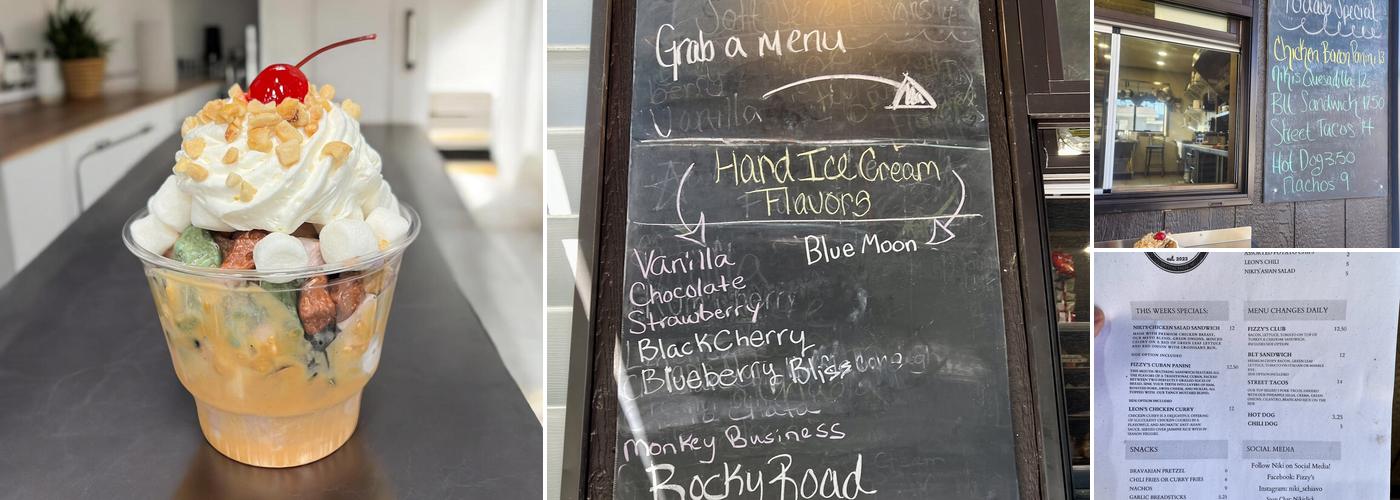 Grab a Menu
Vanilla
Hand Ice Cream
Flavors
Vanilla
Chocolate
Strawberry
Black Cherry
Blueberry Bliss
Monkey Business
Rocky Road
Blue Moon
Today Special
Chicken Bacon Panini 13
Niki's Quesadilla 12
Blt Sandwich 12.50
Street Tacos 14
Hot Dog 3.50
Nachos 9
est. 2023
LEON'S CHILI 5
NIKI'S ASIAN SALAD 5
THIS WEEKS SPECIALS:
NIKI'S CHICKEN SALAD SANDWICH 12
MADE WITH PREMIUM CHICKEN BREAST,
SIDE OPTION INCLUDED
FIZZY'S CUBAN PANINI 12.50
SIDE OPTION INCLUDED
LEON'S CHICKEN CURRY 12
SNACKS
BRAVARIAN PRETZEL 6
CHILI FRIES OR CURRY FRIES 6
NACHOS 9
GARLIC BREADSTICKS 5.25
MENU CHANGES DAILY
FIZZY'S CLUB 12.50
BACON, LETTUCE, TOMATO ON TOP OF
TURKEY & CHEDDAR SANDWICH.
BLT SANDWICH 12
STREET TACOS 14
HOT DOG 3.25
CHILI DOG 5
SOCIAL MEDIA
Follow Niki on Social Media!
Facebook: Fizzy's
Instagram: niki_schiavo